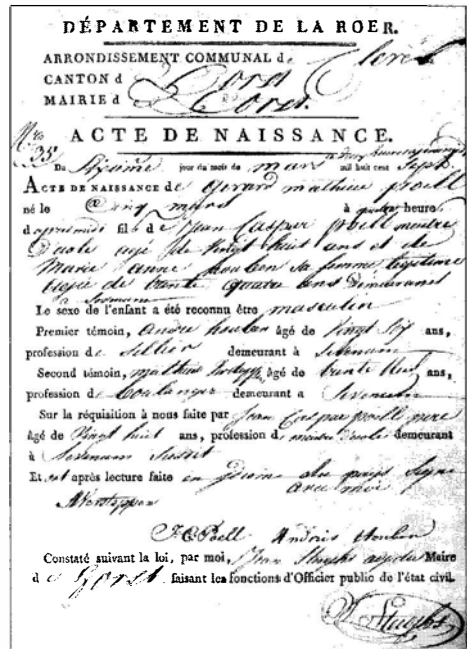 DÉPARTEMENT DE LA ROER.
ARRONDISSEMENT COMMUNAL de Cleves
CANTON d Horst
MAIRIE d Horst.
ACTE DE NAISSANCE.
Nro
35
Du Sixième jour du mois de mars mil huit cent Sept
ACTE DE NAISSANCE de Gerard mathieu poell
né le Cinq mars à quatre heures
d'après midi fils de Jean Caspar poell maitre
D'ecole agé de vingt huit ans et de
Marie Anne houben Sa femme legitime
agée de trente quatre ans demeurant
a Sevenum
Le sexe de l'enfant a été reconnu être masculin
Premier témoin, André houben âgé de Vingt Six ans,
profession de Sellier demeurant à Sevenum
Second témoin, mathieu âgé de trente ans,
profession de boulanger demeurant à Sevenum
Sur la réquisition à nous faite par Jean Caspar poell pere
âgé de Vingt huit ans, profession de maitre d'ecole demeurant
à Sevenum Susdit
Et après lecture faite en du pays Signé
avec moi
J C Poell Andris Houben
Constaté suivant la loi, par moi, Jean Maire
d e Horst, faisant les fonctions d'Officier public de l'état civil.